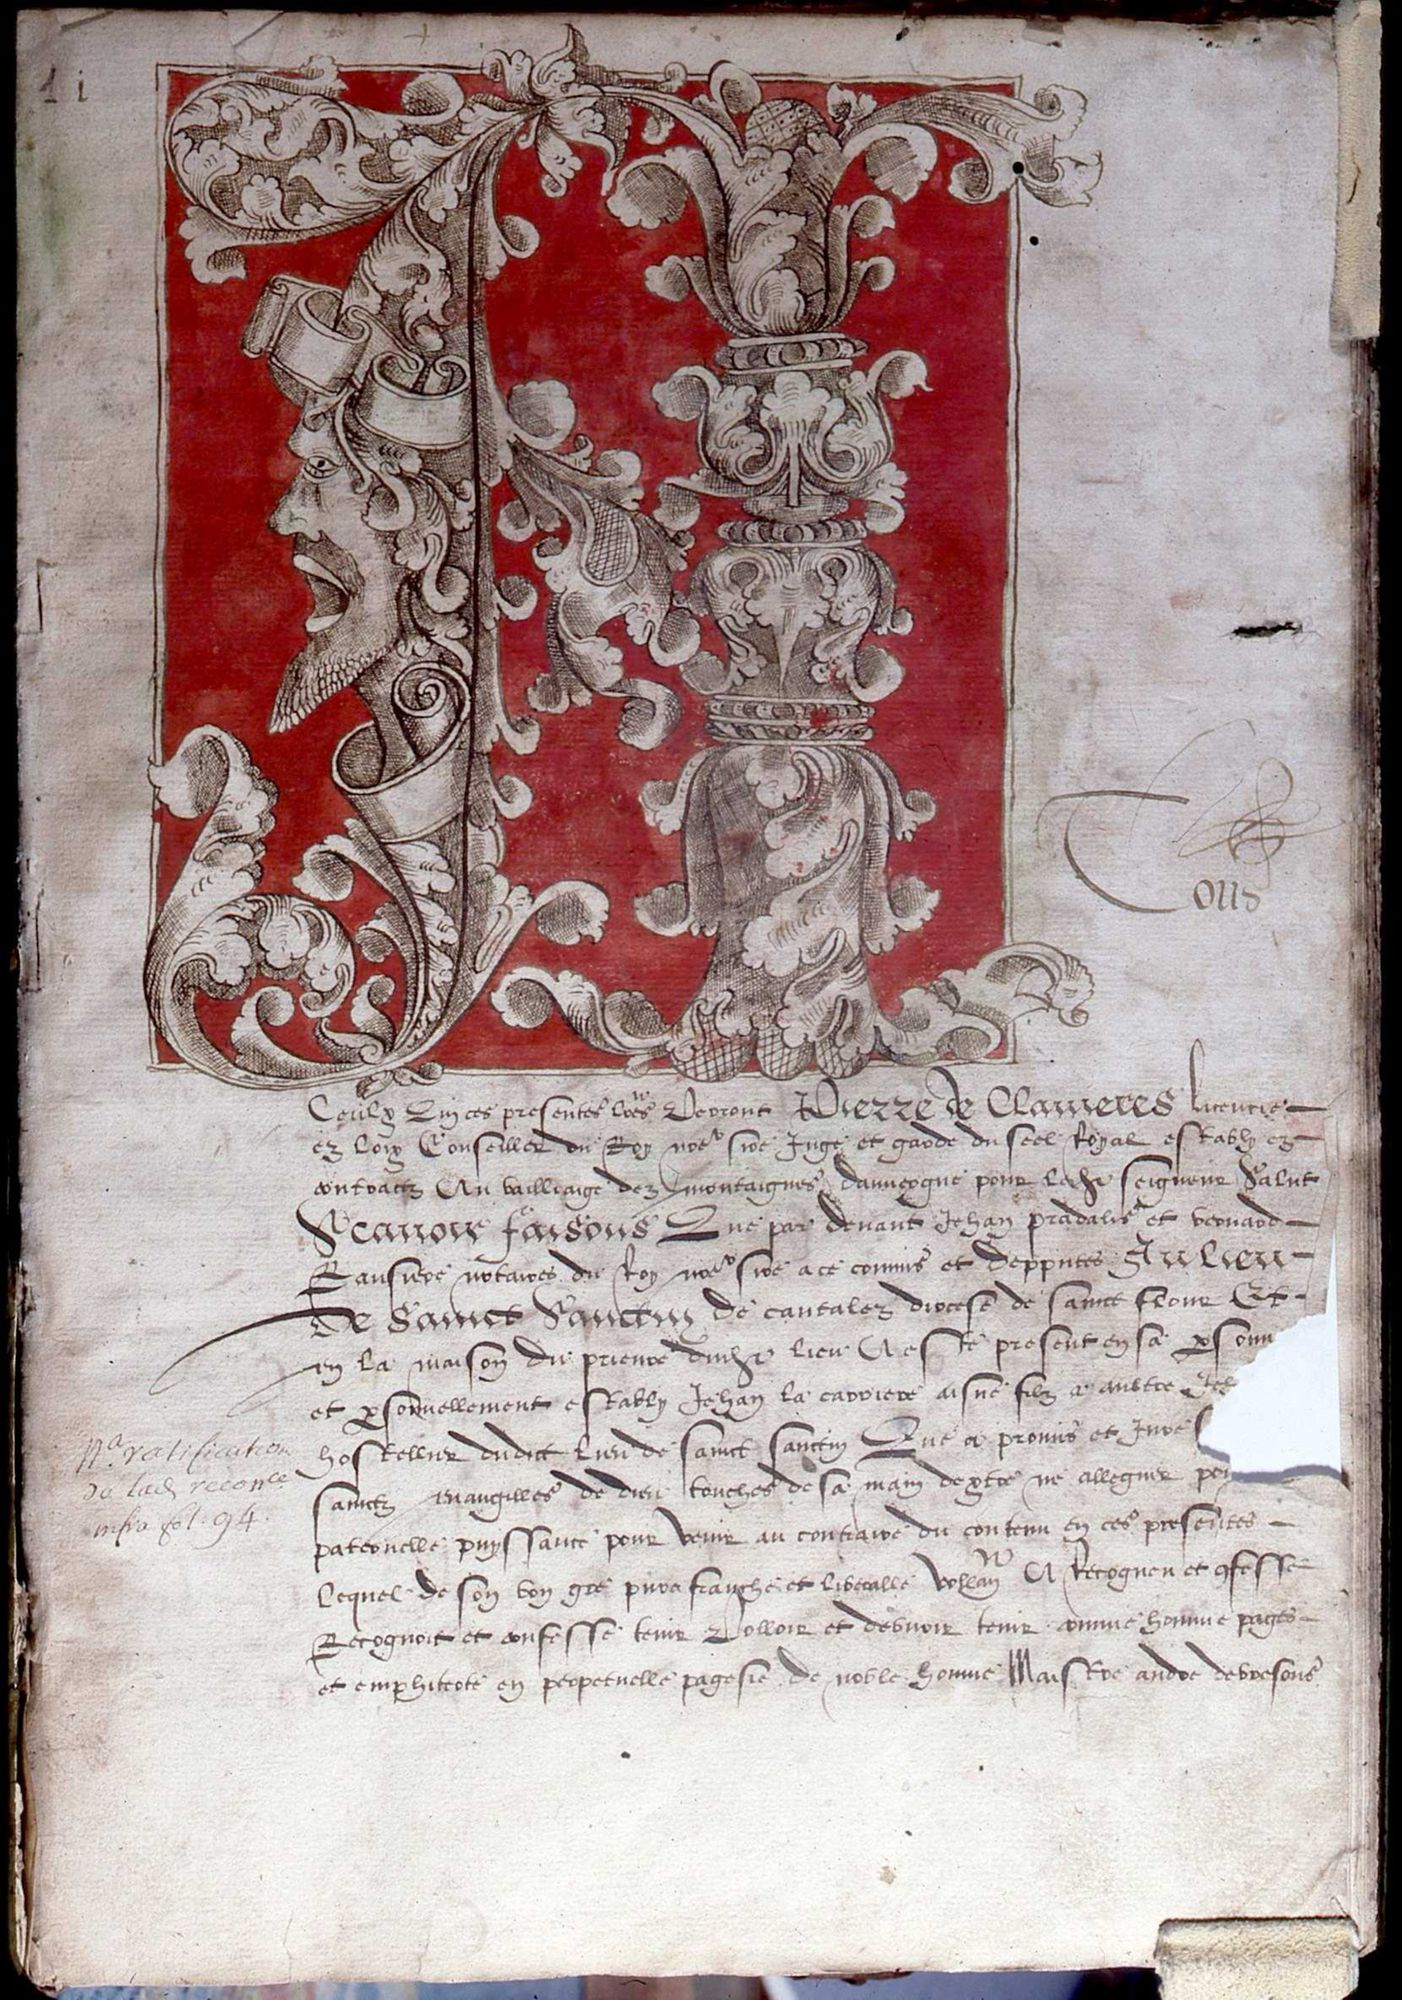 1 i
A Tous
Ceulx Quj ces presentes lres verront Pierre de Clavieres licencié
ez loix Conseiller du Roy nre sire Juge et garde du seel Royal estably ez
contractz Au bailliaige dez montaignes dauvergne pour ledit seigneur Salut
Scavoir faisons Que par devant Jehan pradalis et bernard
notaires du Roy nre sire a ce commis et depputes Au lieu
De Sainct Sanctin de cantalez diocese de sainct flour Et
en la maison du prieure dudit lieu A esté present en sa person
et personnellement estably Jehan la carriere aisne filz a aultre Jeh
hostellier dudict lieu de sainct sanctin Que a promis et Jure s
sainctz evangilles de dieu touches de sa main dextre ne alleguer
paternelle puyssance pour venir au contraire du contenu en ces presentes
Lequel de son bon gre pure franche et liberalle vollanté A Recogneu et confesse
Recognoit et confesse tenir Volloir et debvoir tenir comme homme pages
et emphiteote en perpetuelle pagesie de noble homme Maistre andre
Na ratification
de lad. recon.ce
infra fol. 94.